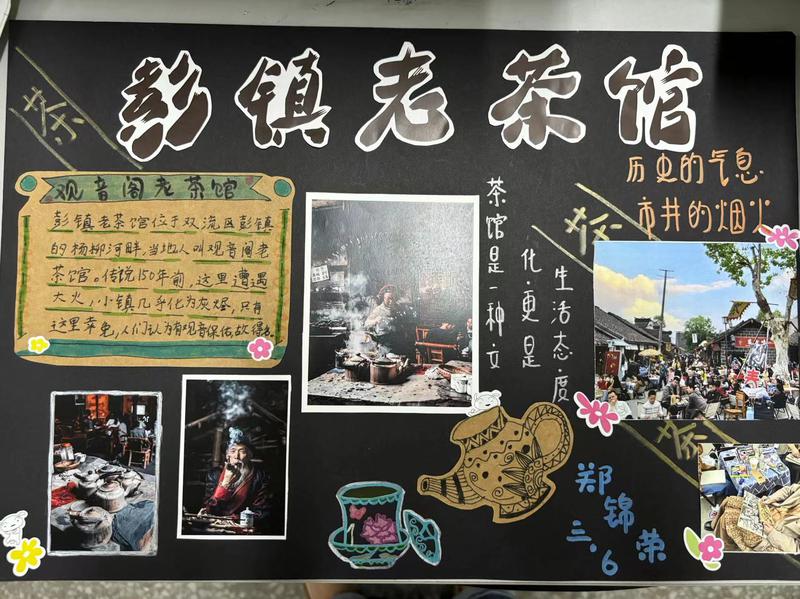 茶
彭镇老茶馆
历史的气息
市井的烟火
观音阁老茶馆
彭镇老茶馆位于双流区彭镇
的杨柳河畔,当地人叫观音阁老
茶馆。传说150年前,这里遭遇
大火,小镇几乎化为灰烬,只有
这里幸免,人们认为有观音保佑,故得名。
茶馆是一种文
化,更是
生活态度
茶
茶
郑锦荣
三.6